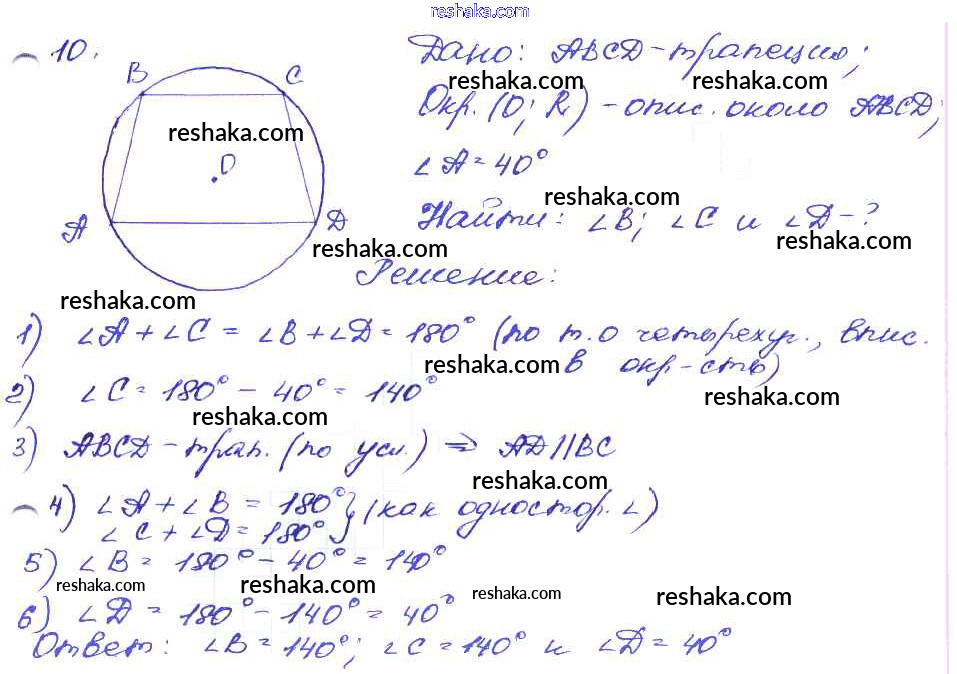 reshaka.com
10.
B C
O
A D
reshaka.com
Дано: ABCD-трапеция;
reshaka.com reshaka.com
Окр.(O; R) - опис. около ABCD;
∠A = 40°
reshaka.com
Найти: ∠B; ∠C и ∠D - ?
reshaka.com reshaka.com
Решение:
reshaka.com
1) ∠A + ∠C = ∠B + ∠D = 180° (по т. о четырехуг., впис.
reshaka.com в окр-сть)
2) ∠C = 180° - 40° = 140°
reshaka.com reshaka.com
3) ABCD - трап. (по усл.) ⇒ AD || BC
reshaka.com
4) ∠A + ∠B = 180° } (как одностор. ∠)
∠C + ∠D = 180°
5) ∠B = 180° - 40° = 140°
reshaka.com reshaka.com reshaka.com reshaka.com
6) ∠D = 180° - 140° = 40°
Ответ: ∠B = 140°; ∠C = 140° и ∠D = 40°